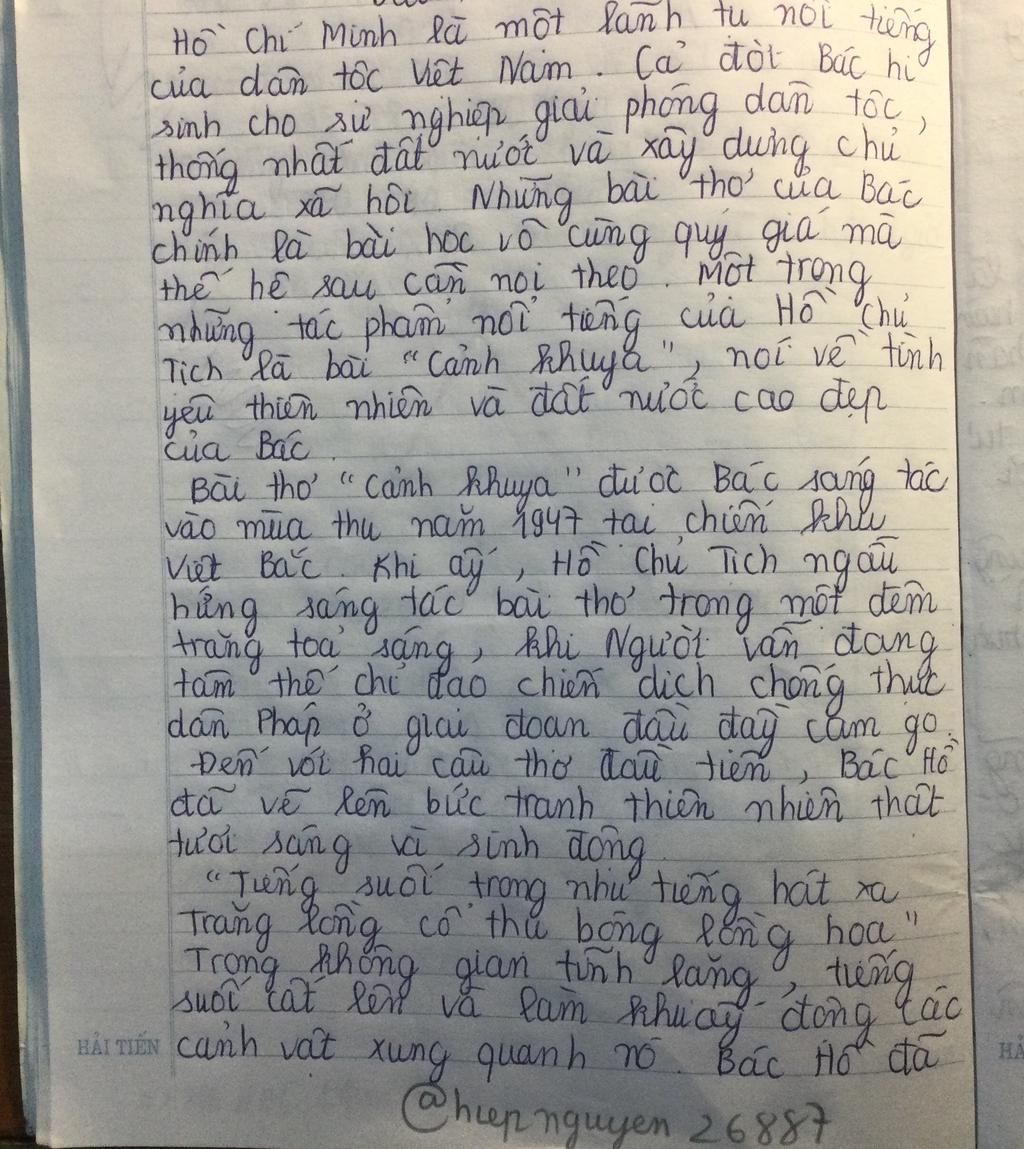 Hồ Chí Minh là một lãnh tụ nổi tiếng
của dân tộc Việt Nam. Cả đời Bác hi
sinh cho sự nghiệp giải phóng dân tộc,
thống nhất đất nước và xây dựng chủ
nghĩa xã hội. Những bài thơ của Bác
chính là bài học vô cùng quý giá mà
thế hệ sau cần noi theo. Một trong
những tác phẩm nổi tiếng của Hồ Chủ
Tịch là bài "Cảnh khuya", nói về tình
yêu thiên nhiên và đất nước cao đẹp
của Bác.
Bài thơ "Cảnh khuya" được Bác sáng tác
vào mùa thu năm 1947 tại chiến khu
Việt Bắc. Khi ấy, Hồ Chủ Tịch ngẫu
hứng sáng tác bài thơ trong một đêm
trăng toả sáng, khi Người vẫn đang
tâm thế chỉ đạo chiến dịch chống thực
dân Pháp ở giai đoạn đầu đầy cam go.
Đến với hai câu thơ đầu tiên, Bác Hồ
đã vẽ lên bức tranh thiên nhiên thật
tươi sáng và sinh động.
"Tiếng suối trong như tiếng hát xa
Trăng lồng cổ thụ bóng lồng hoa"
Trong không gian tĩnh lặng, tiếng
suối cất lên và làm khuấy động các
HẢI TIẾN cảnh vật xung quanh nó. Bác Hồ đã
@hiepnguyen26887